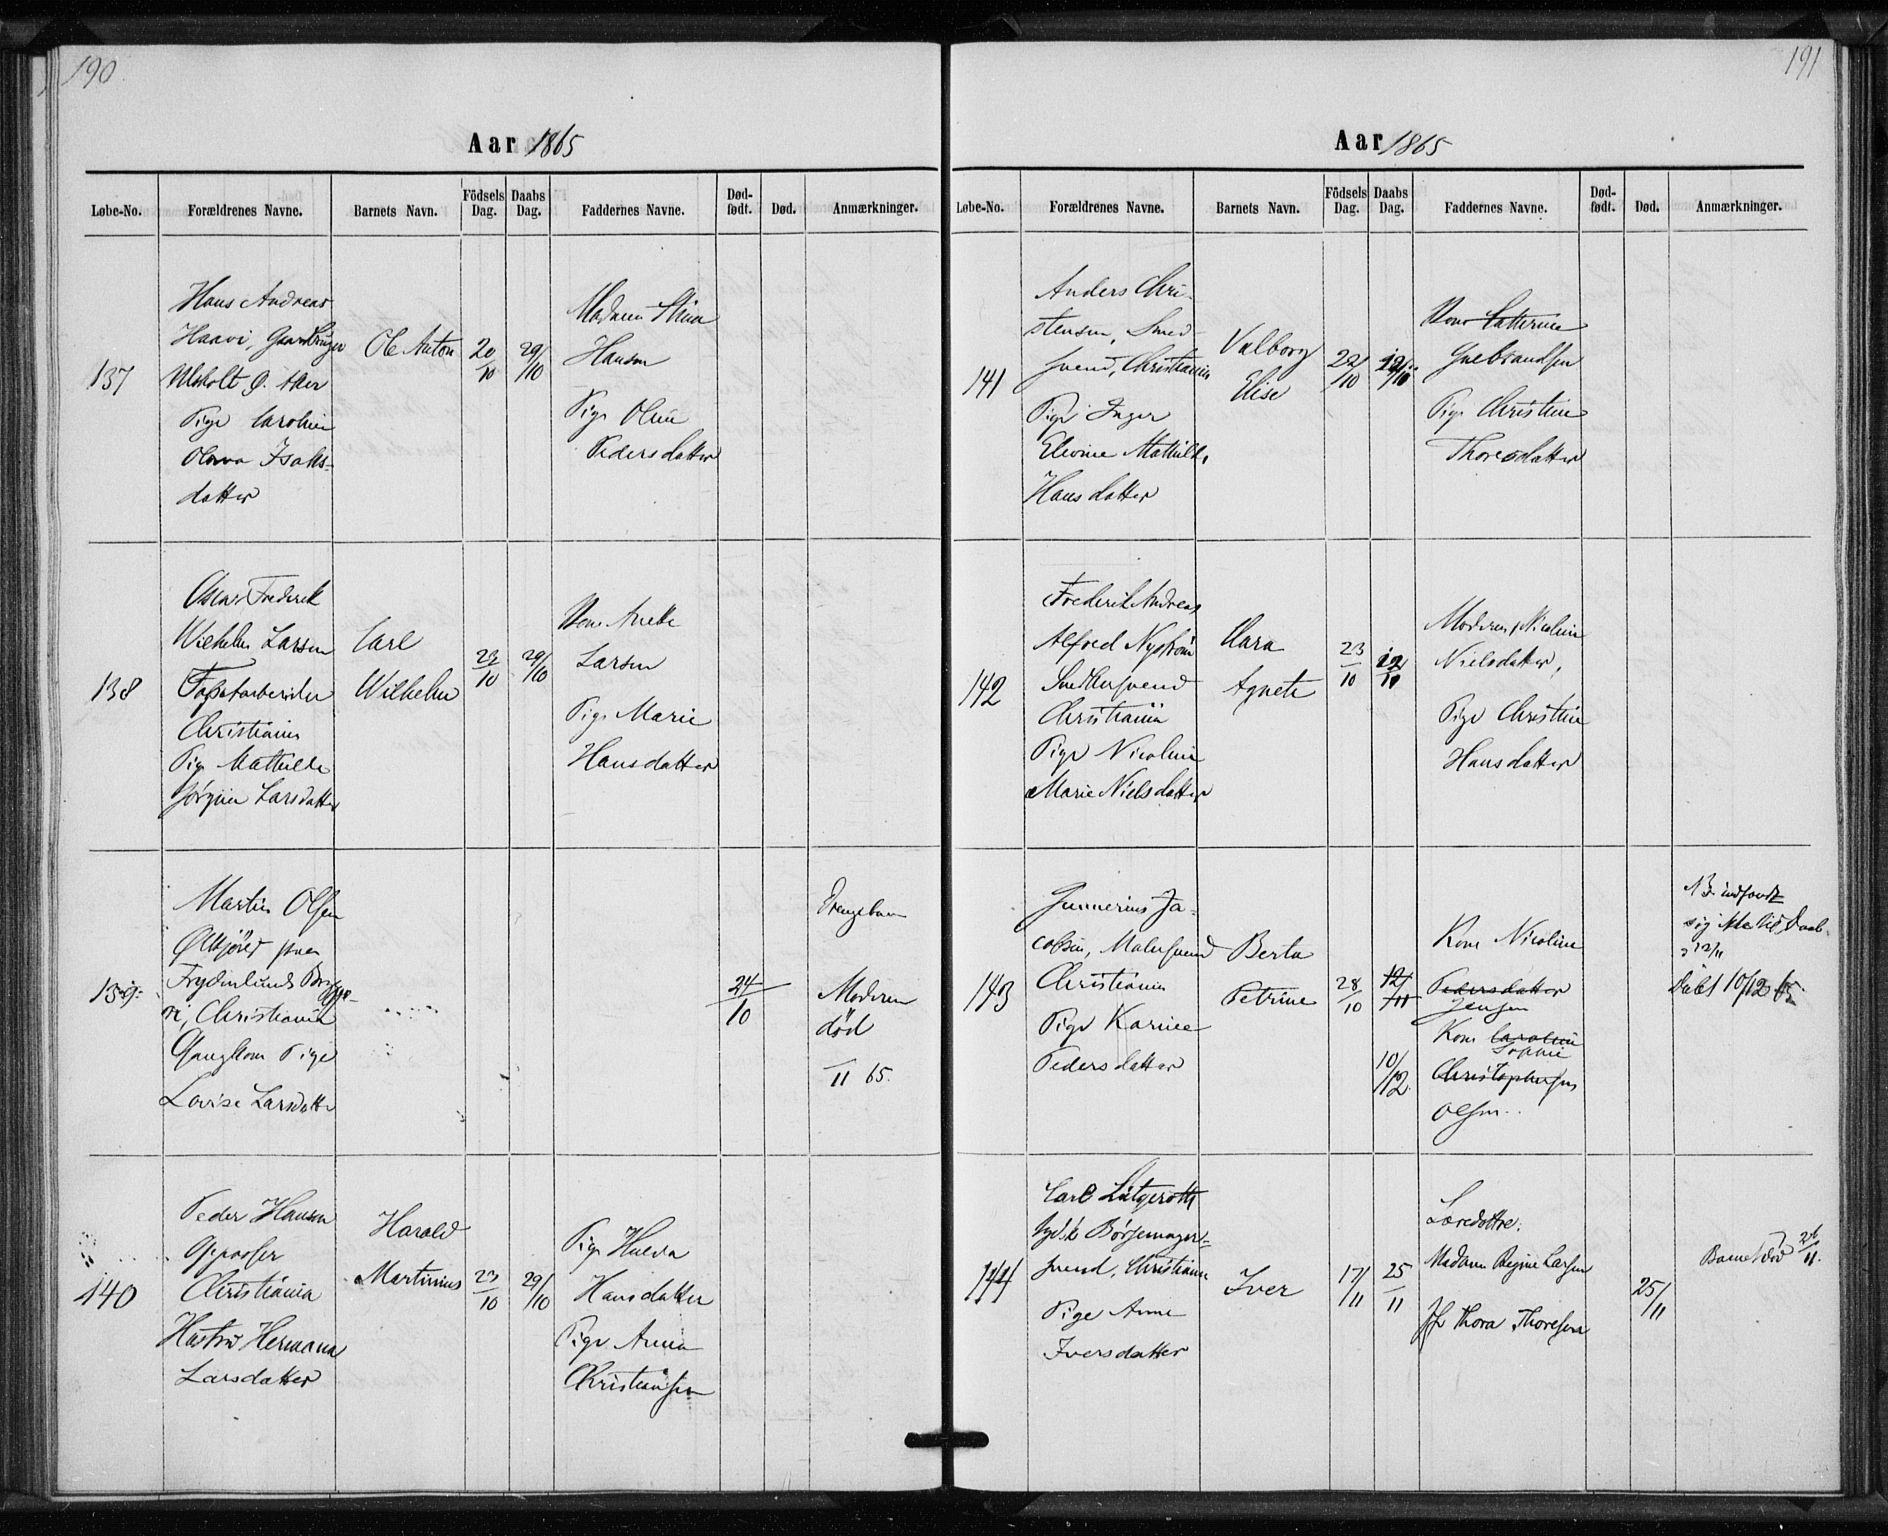 190
Aar 1865
Løbe-No. Forældrenes Navne. Barnets Navn. Födsels Dag. Daabs Dag. Faddernes Navne. Död-födt. Død. Anmærkninger.
137
Hans Andreas
Haavi,
Ø. Aker
Pige Caroline
Isaks-
datter
Ole Anton
20/10
29/10
Madam
Hansen
Pige Oline
Pedersdatter
138
Oscar Frederik
Wilhelm Larsen
Christiania
Pige Mathilde
Jørgine Larsdatter
Carl
Wilhelm
23/10
29/10
Kone Anette
Larsen
Pige Marie
Hansdatter
139
Martin Olsen
Ølkjører paa
Frydenlunds Brygge-
ri, Christiania
Gangkone Pige
Lovise Larsdatter
24/10
Drengebarn
Moderen
död
11 65.
140
Peder Hansen
Gipser
Christiania
Hustru Hermana
Larsdatter
Harald
Martinius
23/10
29/10
Pige Hulda
Hansdatter
Pige Anna
Christiansen
191
Aar 1865
Løbe-No. Forældrenes Navne. Barnets Navn. Födsels Dag. Daabs Dag. Faddernes Navne. Död-födt. Død. Anmærkninger.
141
Anders Chri-
stensen, Smed-
svend, Christiania
Pige Inger
Eleonie Mathilde
Hansdatter
Valborg
Elise
22/10
Kone Cathrine
Gulbrandsen
Pige Christine
Thoresdatter
142
Frederik Andreas
Alfred Nyström
Snedkersvend
Christiania
Pige Nicoline
Marie Nielsdatter
Clara
Agnete
23/10
Moderen, Nicoline
Nielsdatter,
Pige Christine
Hansdatter
143
Gunnerius Ja-
cobsen, Malersvend
Christiania
Pige Karine
Pedersdatter
Berta
Petrine
28/10
12/11
10/12
Kone Nicoline
Pedersdatter
Jensen
Kone Caroline
Sophie
Christophersen
Olsen
NB indfandt
sig ikke til Daab.
12/11
Döbt 10/12 65
144
Carl Lütgeroth
tydsk Børsemager-
svend, Christiania
Pige Anne
Iversdatter
Iver
17/11
25/11
Læredattre.
Madam Regine Larsen
Jfr Thora Thoresen
25/11
Barnet död 26/11.